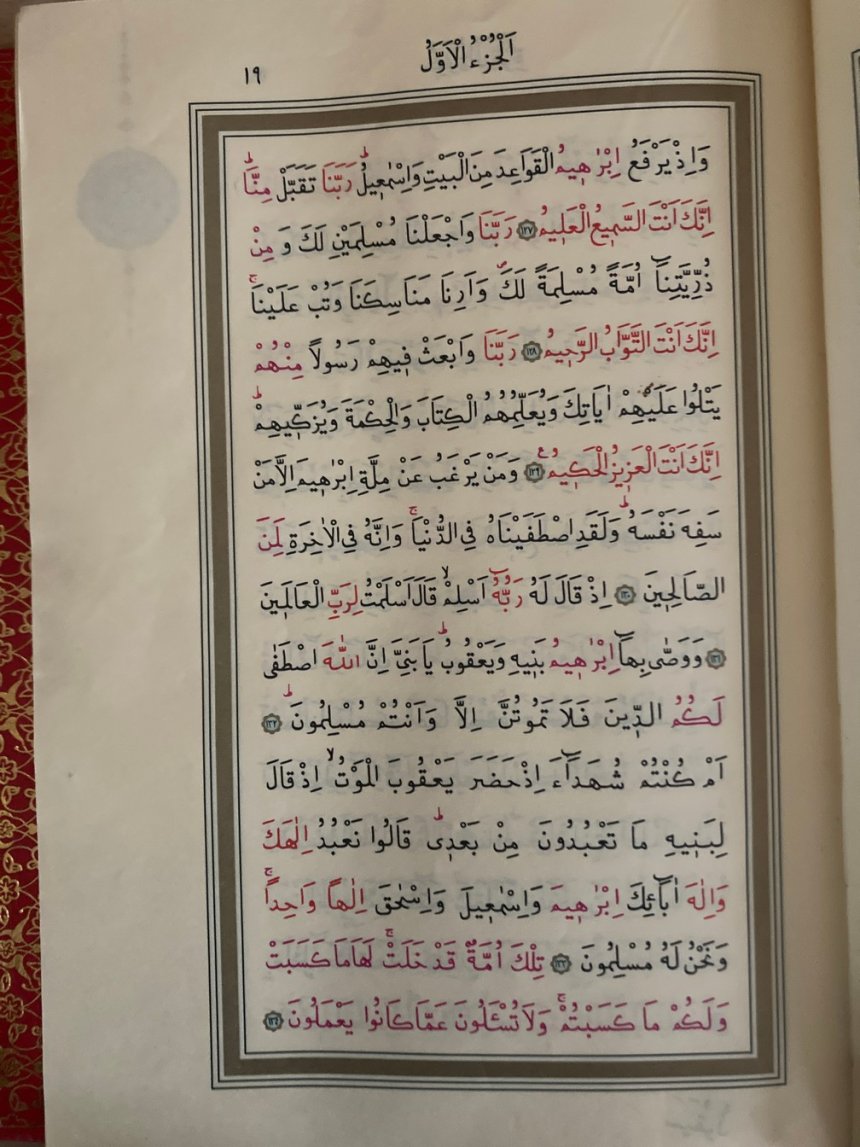 اَلْجُزْءُ الْاَوَّلُ
١٩
وَاِذْ يَرْفَعُ اِبْرٰهٖيمُ الْقَوَاعِدَ مِنَ الْبَيْتِ وَاِسْمٰعٖيلُؕ رَبَّنَا تَقَبَّلْ مِنَّاؕ
اِنَّكَ اَنْتَ السَّمٖيعُ الْعَلٖيمُ ﴿١٢٧﴾ رَبَّنَا وَاجْعَلْنَا مُسْلِمَيْنِ لَكَ وَ مِنْ
ذُرِّيَّتِنَٓا اُمَّةً مُسْلِمَةً لَكَࣕ وَاَرِنَا مَنَاسِكَنَا وَتُبْ عَلَيْنَاۚ
اِنَّكَ اَنْتَ التَّوَّابُ الرَّحٖيمُ ﴿١٢٨﴾ رَبَّنَا وَابْعَثْ فٖيهِمْ رَسُولاً مِنْهُمْ
يَتْلُوا عَلَيْهِمْ اٰيَاتِكَ وَيُعَلِّمُهُمُ الْكِتَابَ وَالْحِكْمَةَ وَيُزَكّٖيهِمْؕ
اِنَّكَ اَنْتَ الْعَزٖيزُ الْحَكٖيمُࣖ ﴿١٢٩﴾ وَمَنْ يَرْغَبُ عَنْ مِلَّةِ اِبْرٰهٖيمَ اِلَّا مَنْ
سَفِهَ نَفْسَهُؕ وَلَقَدِ اصْطَفَيْنَاهُ فِي الدُّنْيَاۚ وَاِنَّهُ فِي الْاٰخِرَةِ لَمِنَ
الصَّالِحٖينَ ﴿١٣٠﴾ اِذْ قَالَ لَهُ رَبُّهُٓ اَسْلِمْۙ قَالَ اَسْلَمْتُ لِرَبِّ الْعَالَمٖينَ
﴿١٣١﴾ وَوَصّٰى بِهَٓا اِبْرٰهٖيمُ بَنٖيهِ وَيَعْقُوبُؕ يَا بَنِيَّ اِنَّ اللّٰهَ اصْطَفٰى
لَكُمُ الدّٖينَ فَلَا تَمُوتُنَّ اِلَّا وَاَنْتُمْ مُسْلِمُونَؕ ﴿١٣٢﴾
اَمْ كُنْتُمْ شُهَدَٓاءَ اِذْ حَضَرَ يَعْقُوبَ الْمَوْتُۙ اِذْ قَالَ
لِبَنٖيهِ مَا تَعْبُدُونَ مِنْ بَعْدٖىؕ قَالُوا نَعْبُدُ اِلٰهَكَ
وَاِلٰهَ اٰبَٓائِكَ اِبْرٰهٖيمَ وَاِسْمٰعٖيلَ وَاِسْحٰقَ اِلٰهاً وَاحِداًۚ
وَنَحْنُ لَهُ مُسْلِمُونَ ﴿١٣٣﴾ تِلْكَ اُمَّةٌ قَدْ خَلَتْۚ لَهَا مَا كَسَبَتْ
وَلَكُمْ مَا كَسَبْتُمْۚ وَلَا تُسْـَٔلُونَ عَمَّا كَانُوا يَعْمَلُونَ ﴿١٣٤﴾